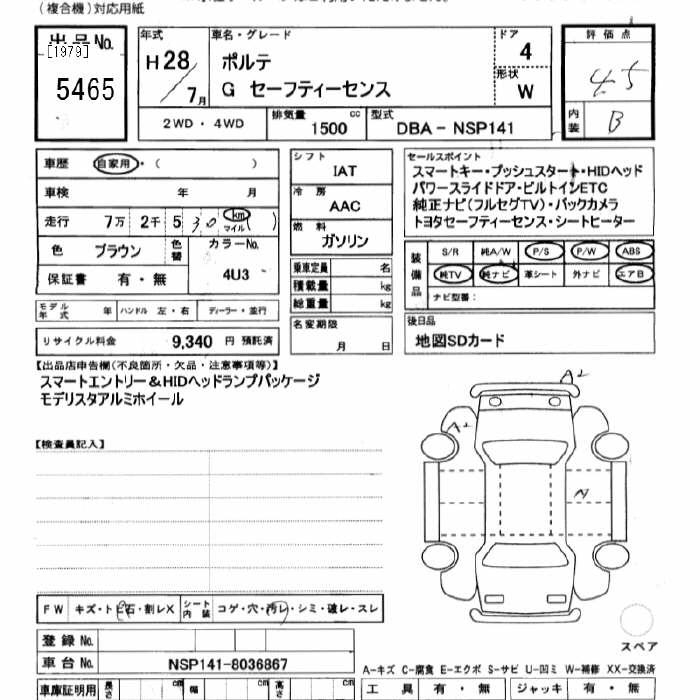 (複合機)対応用紙
出品No.
[1979]
5465
年式
H28
7月
車名・グレード
ポルテ
G セーフティーセンス
ドア
4
形状
W
評価点
4.5
内装
B
2WD・4WD
排気量
1500 cc
型式
DBA-NSP141
車歴 自家用・( )
車検 年 月
走行 7万 2千 530 km マイル ( )
色 ブラウン
色替
カラーNo.
4U3
保証書 有・無
モデル年式 年
ハンドル 左・右
ディーラー・並行
リサイクル料金 9,340 円 預託済
シフト
IAT
冷房
AAC
燃料
ガソリン
乗車定員 名
積載量 kg
総重量 kg
名変期限
月 日
セールスポイント
スマートキー・プッシュスタート・HIDヘッド
パワースライドドア・ビルトインETC
純正ナビ(フルセグTV)・バックカメラ
トヨタセーフティーセンス・シートヒーター
装備品
S/R 純A/W P/S P/W ABS
純TV 純ナビ 革シート 外ナビ エアB
ナビ型番:
後日品
地図SDカード
【出品店申告欄(不良箇所・欠品・注意事項等)】
スマートエントリー&HIDヘッドランプパッケージ
モデリスタアルミホイール
【検査員記入】
A2
A2
A
FW キズ・トビ石・割レX
シート内装 コゲ・穴・汚レ・シミ・破レ・スレ
スペア
登録No.
車台No. NSP141-8036867
A-キズ C-腐食 E-エクボ S-サビ U-凹ミ W-補修 XX-交換済
車庫証明用 長さ cm 幅 cm 高さ cm
工具 有・無 ジャッキ 有・無